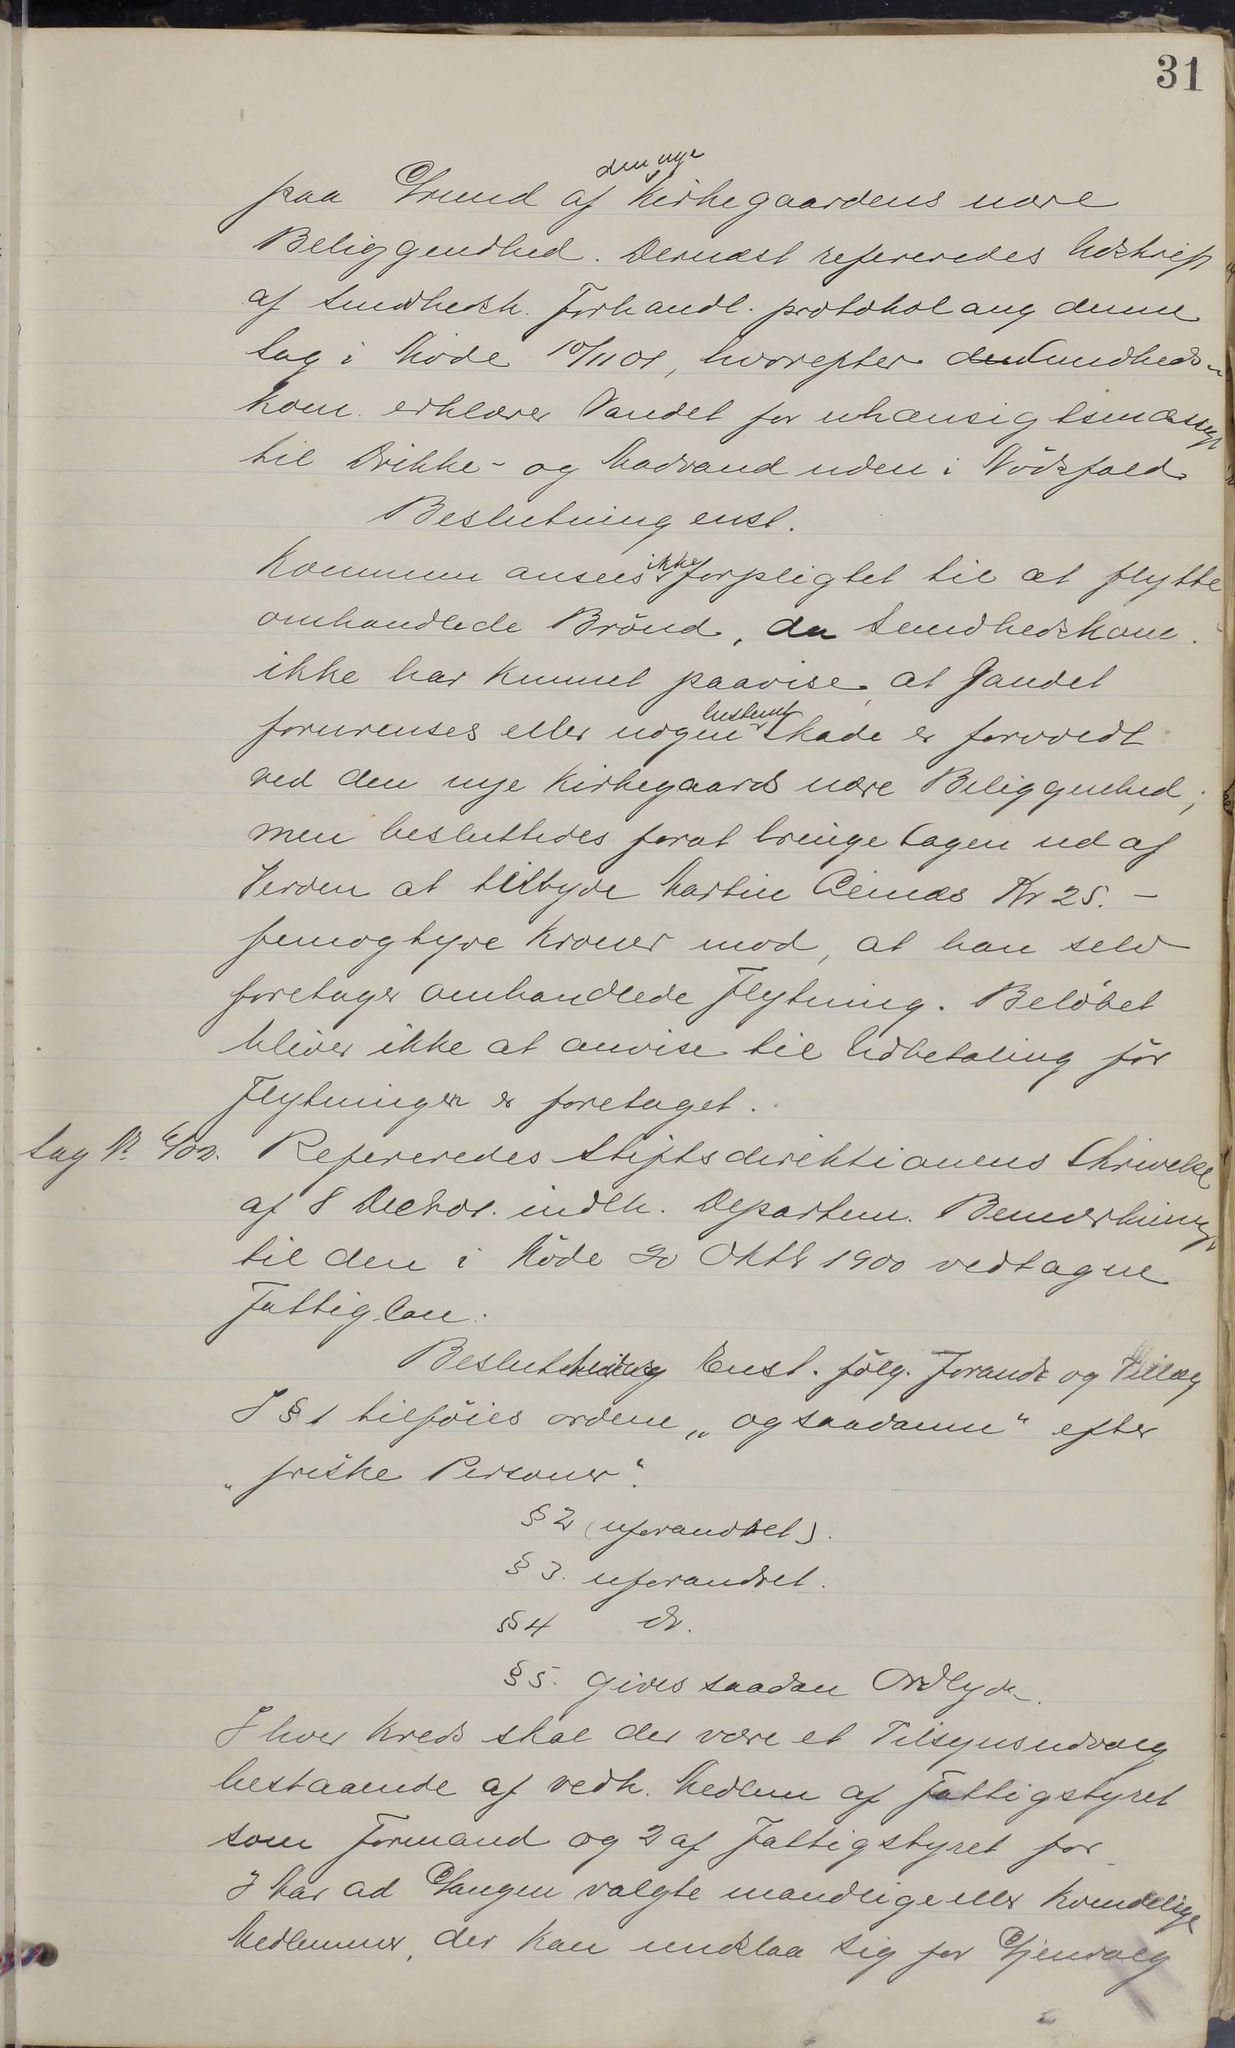 31
den nye
paa Grund af Kirkegaardens nære
Beliggendhed. Dernæst refereredes Udskrift
af Sundhedsk. Forhandl. protokol ang denne
Sag i Møde 10/11 01, hvorefter den Sundheds-
kom. erklærer Vandet for uhensigtsmæssigt
til Drikke- og Madvand uden i Nödsfald.
Beslutning enst.
Kommunen ansees ikke forpligtet til at flytte
omhandlede Brönd, da Sundhedskom.
ikke har kunnet paavise, at Vandet
forurenses eller nogen bestemt Skade er forvoldt
ved den nye Kirkegaards nære Beliggenhed;
men besluttedes forat bringe Sagen ud af
Verden at tilbyde Martin Kr 25. –
femogtyve Kroner mod, at han selv
foretager omhandlede Flytning. Belöbet
bliver ikke at anvise til Udbetaling för
Flytningen er foretaget.
Sag N. 6/02. Refereredes Stiftsdirektionens Skrivelse
af 8 Decbr. indeh. Departem. Bemærkninger
til den i Möde 20 Oktb 1900 vedtagne
Fattiglov.
Beslutning Enst. fölg. Forandr og Tillæg
I § 1 tilföies ordene „og saadanne“ efter
„friske Personer“.
§ 2 (uforandret).
§ 3. uforandret.
§ 4 do.
§ 5. gives saadan Ordlyd.
I hver Kreds skal der være et Tilsynsudvalg
bestaaende af vedk. Medlem af Fattigstyret
som Formand og 2 af Fattigstyret for
3 Aar ad Gangen valgte mandlige eller kvindelige
Medlemmer, der kan undslaa sig for Gjenvalg